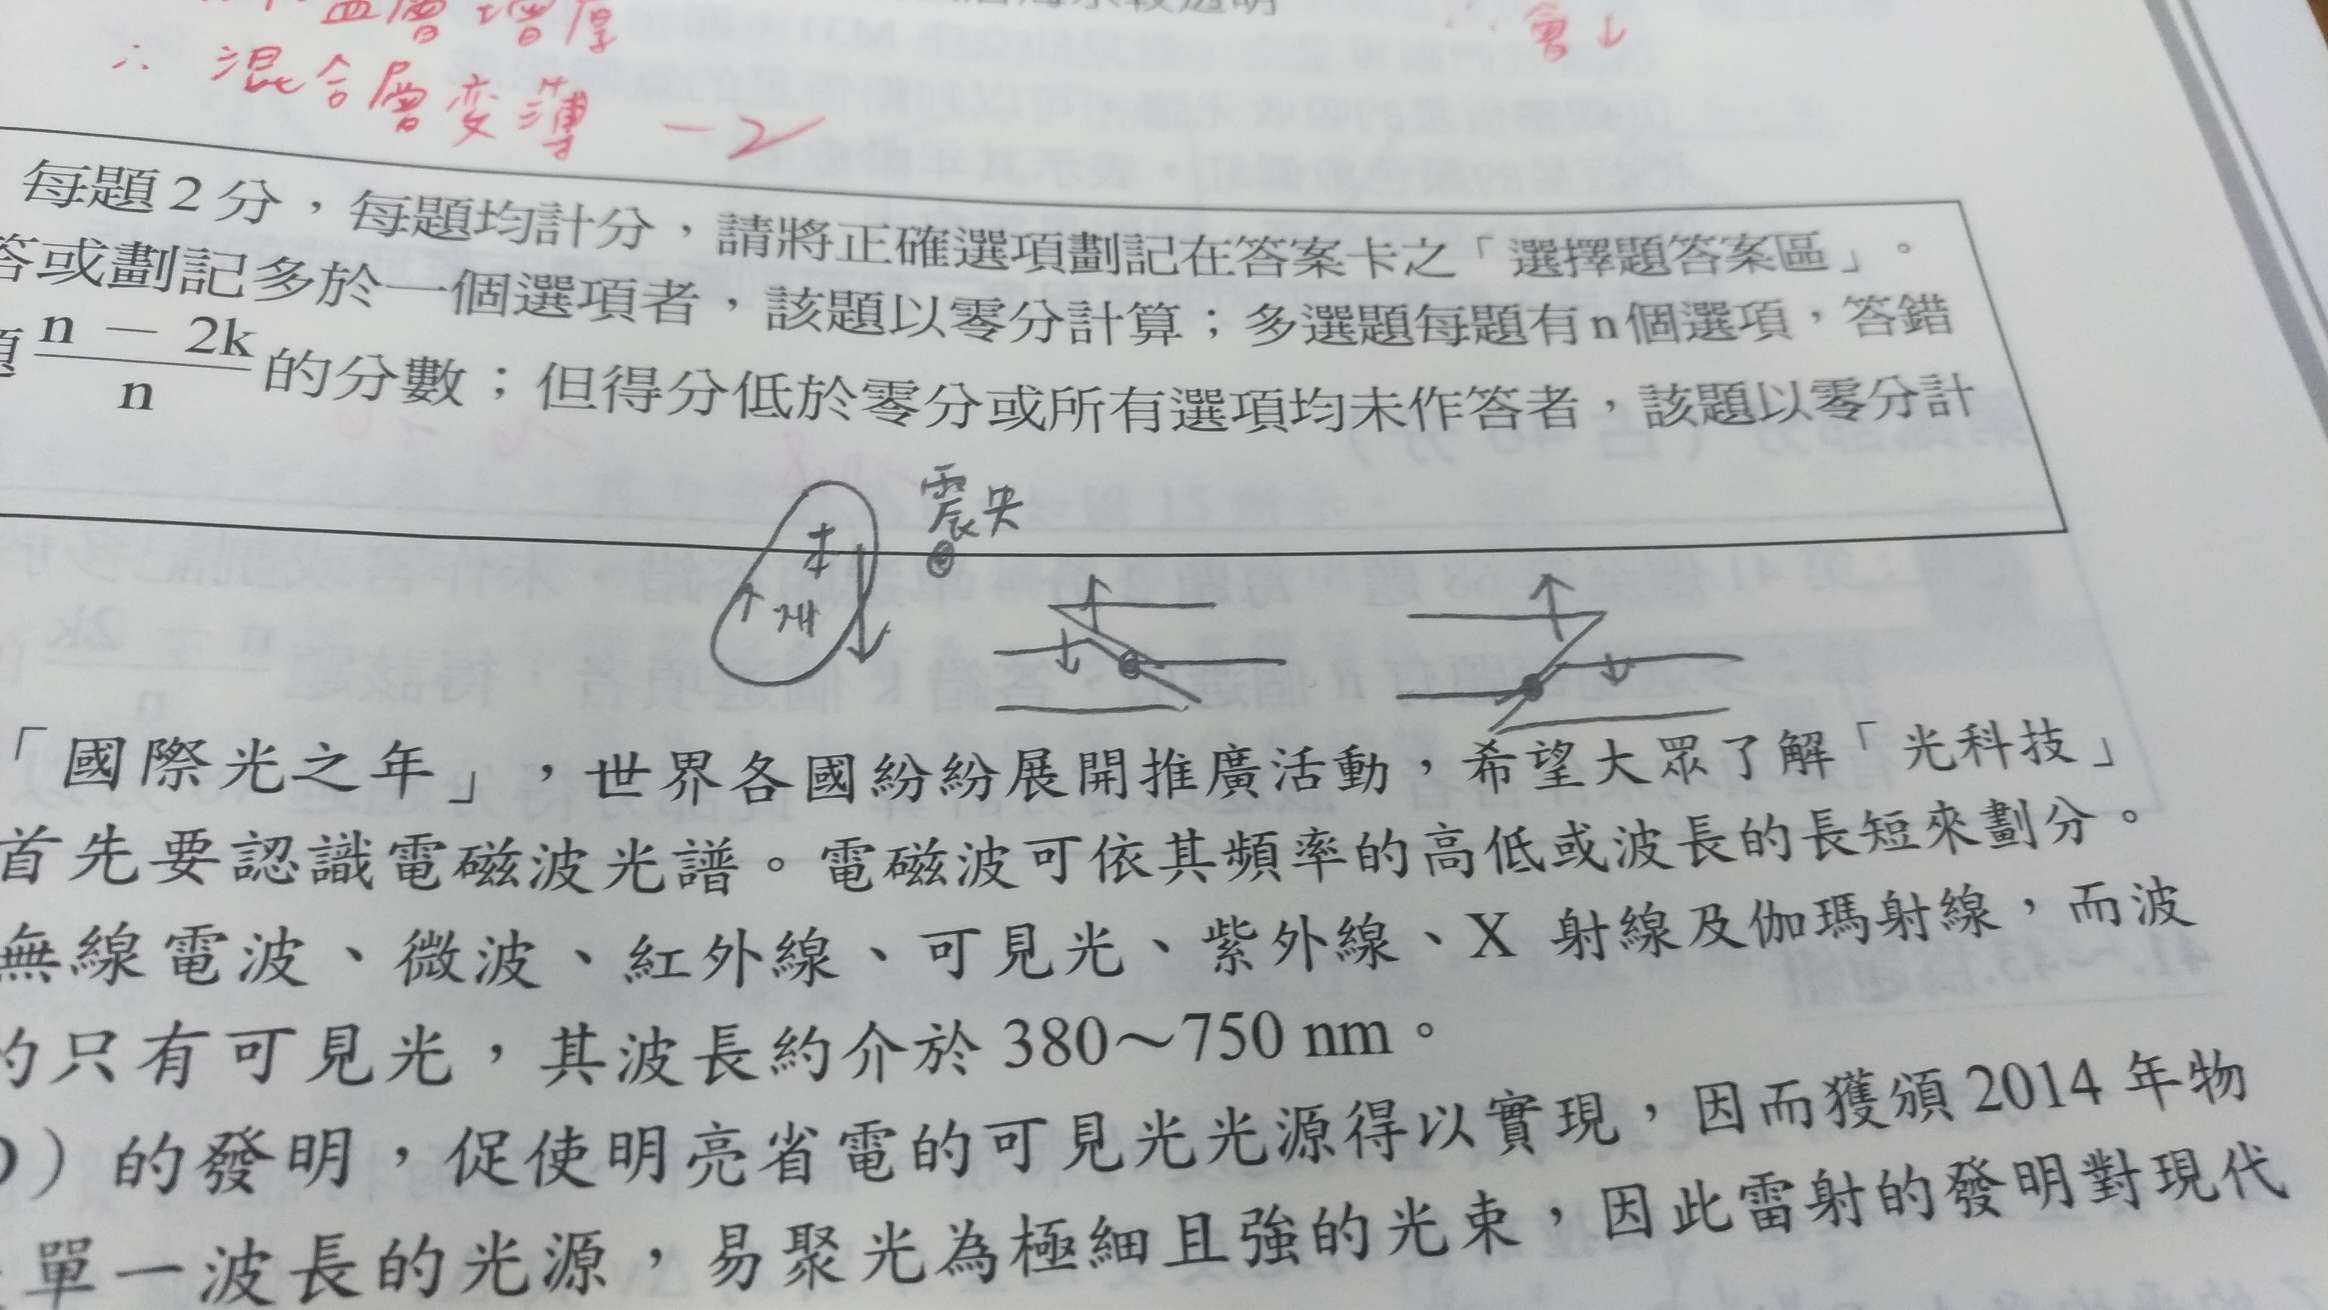 溫層增厚
∴ 混合層變薄 -2
會↓
每題2分，每題均計分，請將正確選項劃記在答案卡之「選擇題答案區」。
答或劃記多於一個選項者，該題以零分計算；多選題每題有n個選項，答錯
題 n － 2k / n 的分數；但得分低於零分或所有選項均未作答者，該題以零分計
震央
「國際光之年」，世界各國紛紛展開推廣活動，希望大眾了解「光科技」
首先要認識電磁波光譜。電磁波可依其頻率的高低或波長的長短來劃分。
無線電波、微波、紅外線、可見光、紫外線、X 射線及伽瑪射線，而波
的只有可見光，其波長約介於 380～750 nm。
）的發明，促使明亮省電的可見光光源得以實現，因而獲頒 2014 年物
單一波長的光源，易聚光為極細且強的光束，因此雷射的發明對現代